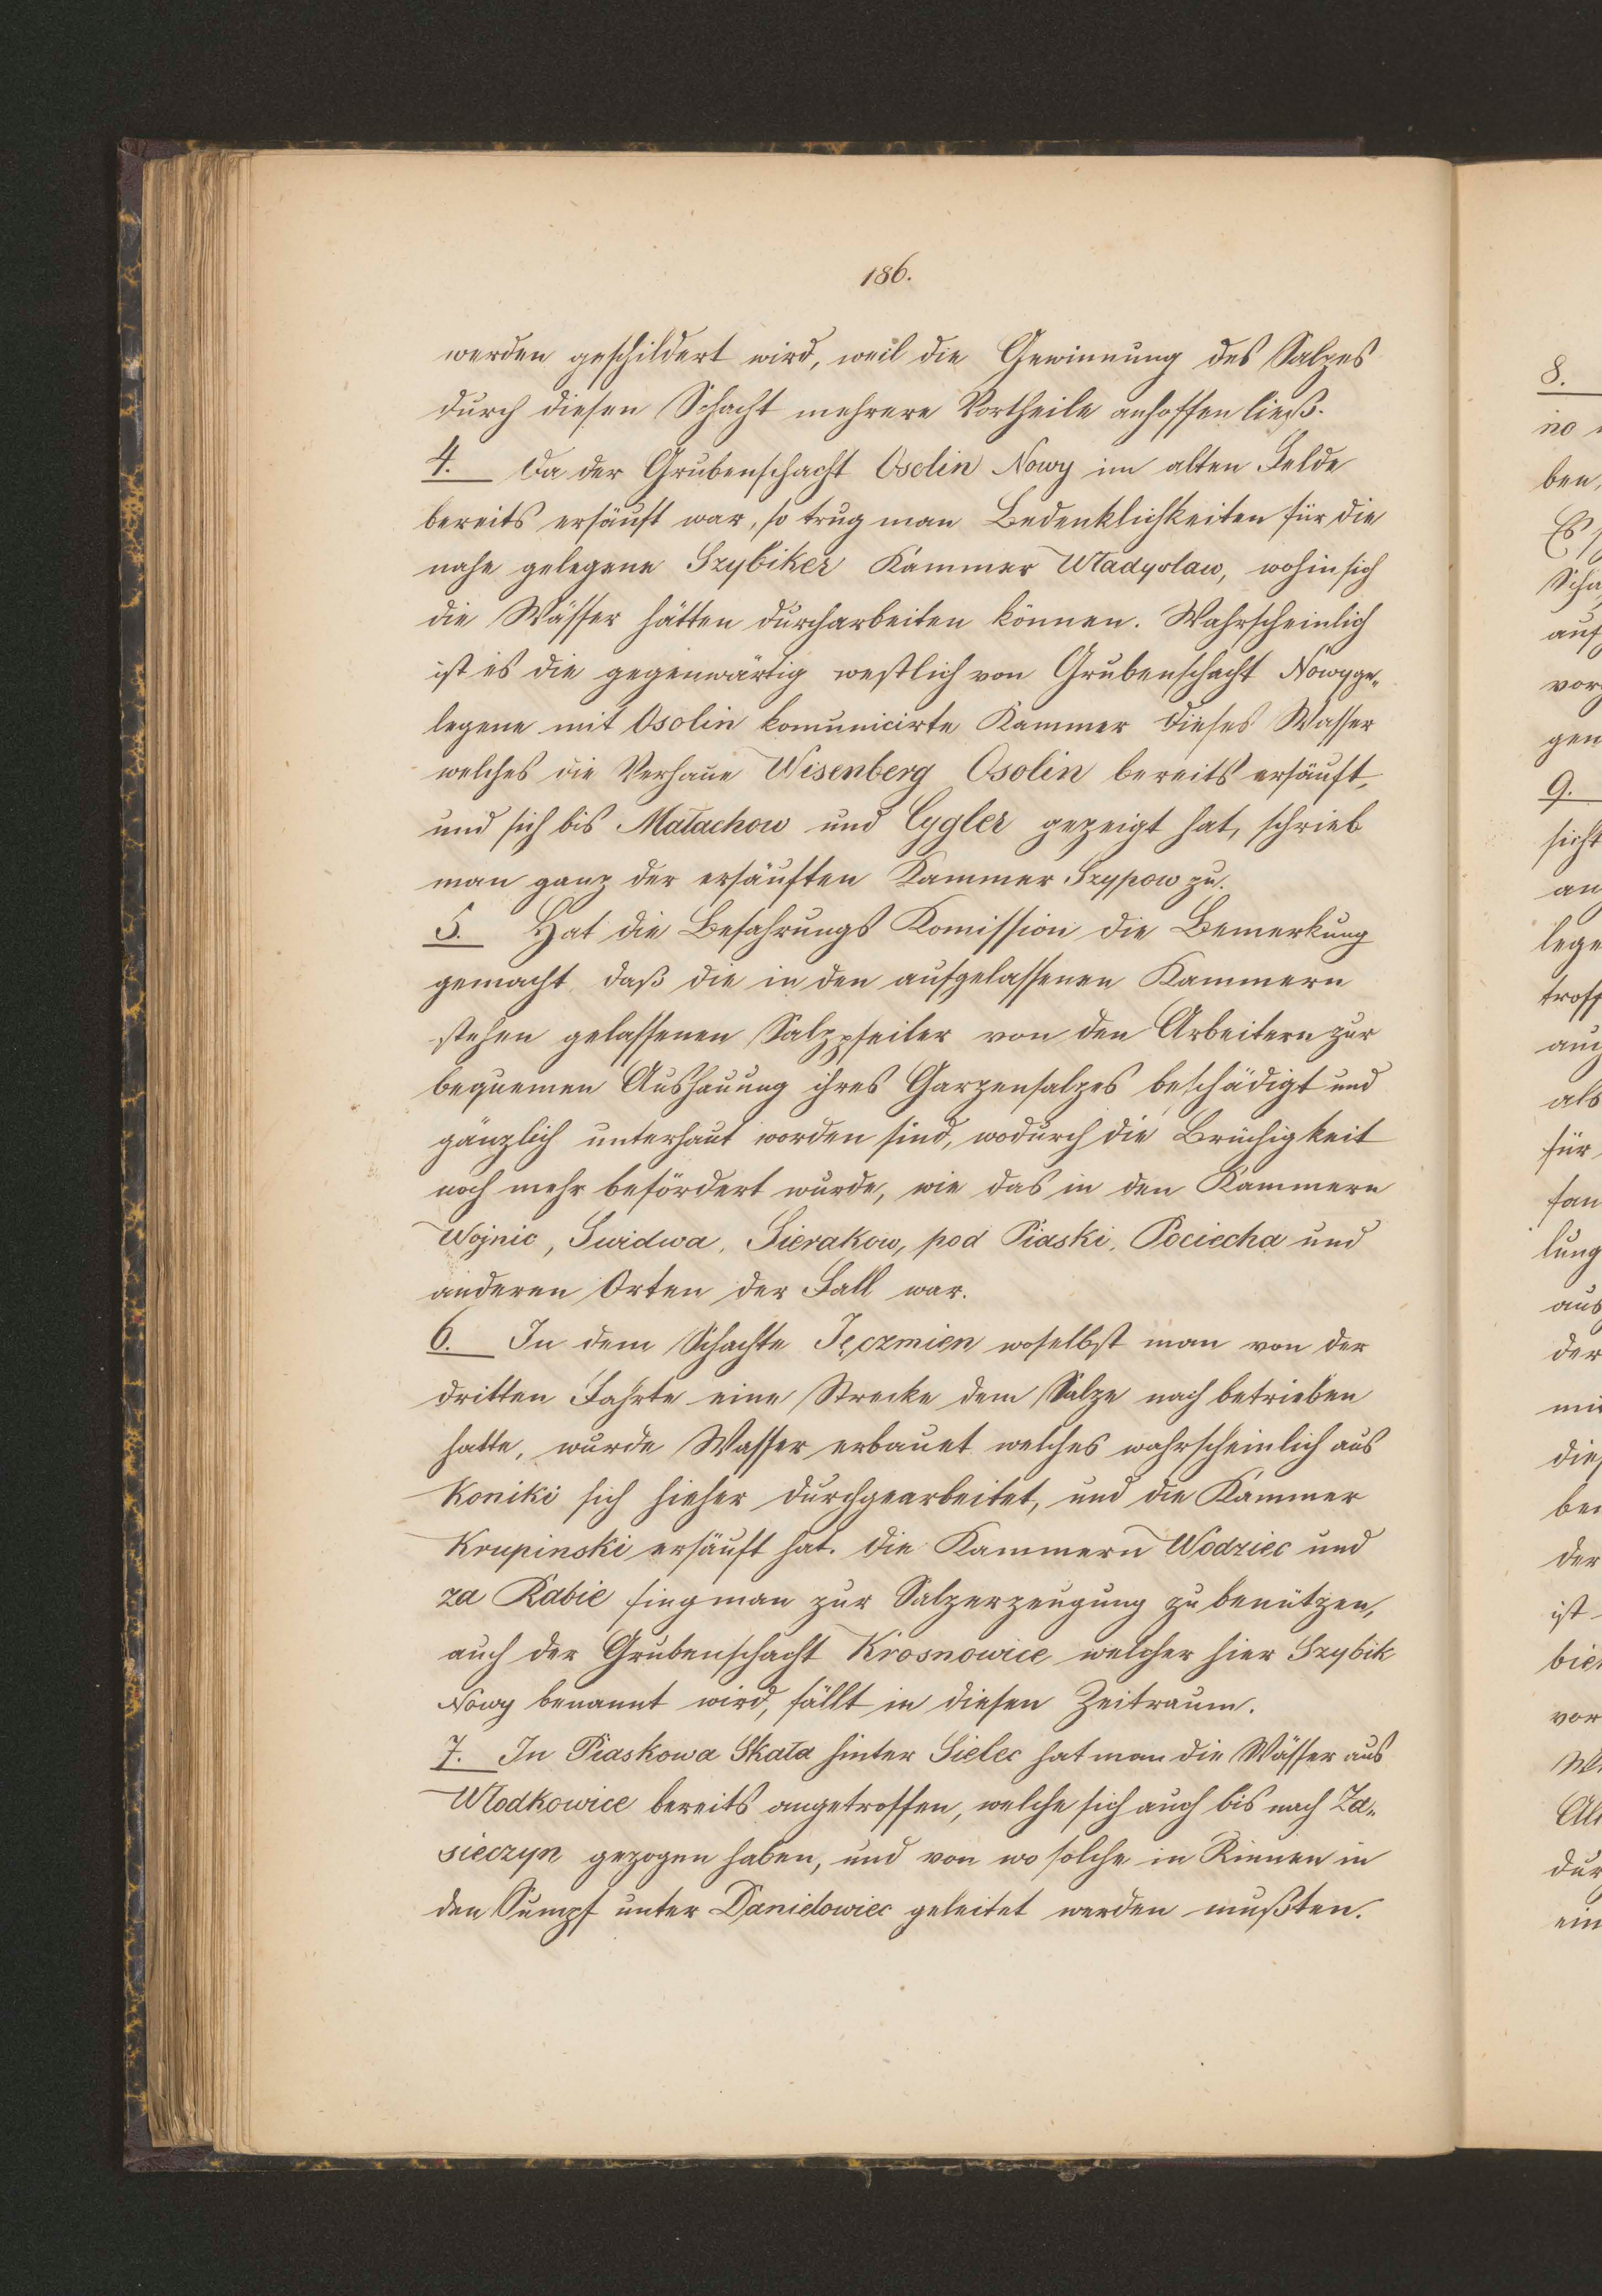 186.
werden geschildert wird, weil die Gewinnung des Salzes
durch diesen Schacht mehrere Vortheile anhoffen ließ.
4. Da der Grubenschacht Osolin Nowy im alten Felde
bereits ersäuft war, so trug man Bedenklichkeiten für die
nahe gelegene Szybiker Kammer Władysław, wohin sich
die Wässer hätten durcharbeiten können. Wahrscheinlich
ist es die gegenwärtig westlich von Grubenschacht Nowy ge„
legene mit Osolin komunicirte Kammer dieses Wasser
welches die Verhaue Wisenberg Osolin bereits ersäuft,
und sich bis Małachow und Cygler gezeigt hat, schrieb
man ganz der ersäuften Kammer Szypow zu.
5. Hat die Befahrungs Komission die Bemerkung
gemacht daß die in den aufgelassenen Kammern
stehen gelassenen Salzpfeiler von den Arbeitern zur
bequemen Aushauung ihres Garzensalzes beschädigt und
gänzlich unterhaut worden sind, wodurch die Brüchigkeit
noch mehr befördert wurde, wie das in den Kammern
Wojnic, Swidwa, Sierakow, pod Piaski, Pociecha und
anderen Orten der Fall war.
6. In dem Schachte Jęczmien woselbst man von der
dritten Fahrte eine Strecke dem Salze nach betrieben
hatte, wurde Wasser erbauet welches wahrscheinlich aus
Koniki sich hieher durchgearbeitet, und die Kammer
Krupinski ersäuft hat. Die Kammern Wodziec und
za Rabie fing man zur Salzerzeugung zu benützen,
auch der Grubenschacht Krosnowice welcher hier Szybik
Nowy benannt wird, fällt in diesen Zeitraum.
7. In Piaskowa Skała hinter Sielec hat man die Wässer aus
Włodkowice bereits angetroffen, welche sich auch bis nach Za„
sieczyn gezogen haben, und von wo solche in Rinnen in
den Sumpf unter Daniełowiec geleitet werden mußten.
8.
no
ben,
Es
Scha
auf
vor
gen
9.
sicht
an
lege
troff
auch
als
für
fan
lung
aus
der
mi
die
be
der
ist
bie
vor
W
Al
dur
ein